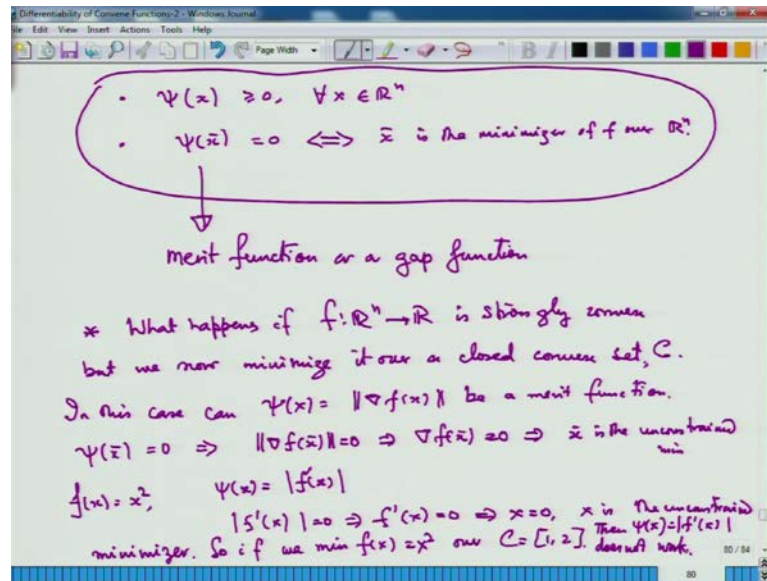 Differentiability of Convene Functions-2 - Windows Journal
File Edit View Insert Actions Tools Help
Page Width
• Ψ(x) ≥ 0, ∀ x ∈ ℝⁿ
• Ψ(x̄) = 0 <=> x̄ is the minimizer of f over ℝⁿ.
merit function or a gap function
* What happens if f: ℝⁿ → ℝ is strongly convex
but we now minimize it over a closed convex set, C.
In this case can Ψ(x) = ‖∇f(x)‖ be a merit function.
Ψ(x̄) = 0 ⇒ ‖∇f(x̄)‖ = 0 ⇒ ∇f(x̄) = 0 ⇒ x̄ is the unconstrained min
f(x) = x², Ψ(x) = |f'(x)|
|f'(x)| = 0 ⇒ f'(x) = 0 ⇒ x = 0, x is the unconstrained
minimizer. So if we min f(x) = x² over C = [1, 2]. Then Ψ(x) = |f'(x)| does not work.
80 / 84
80